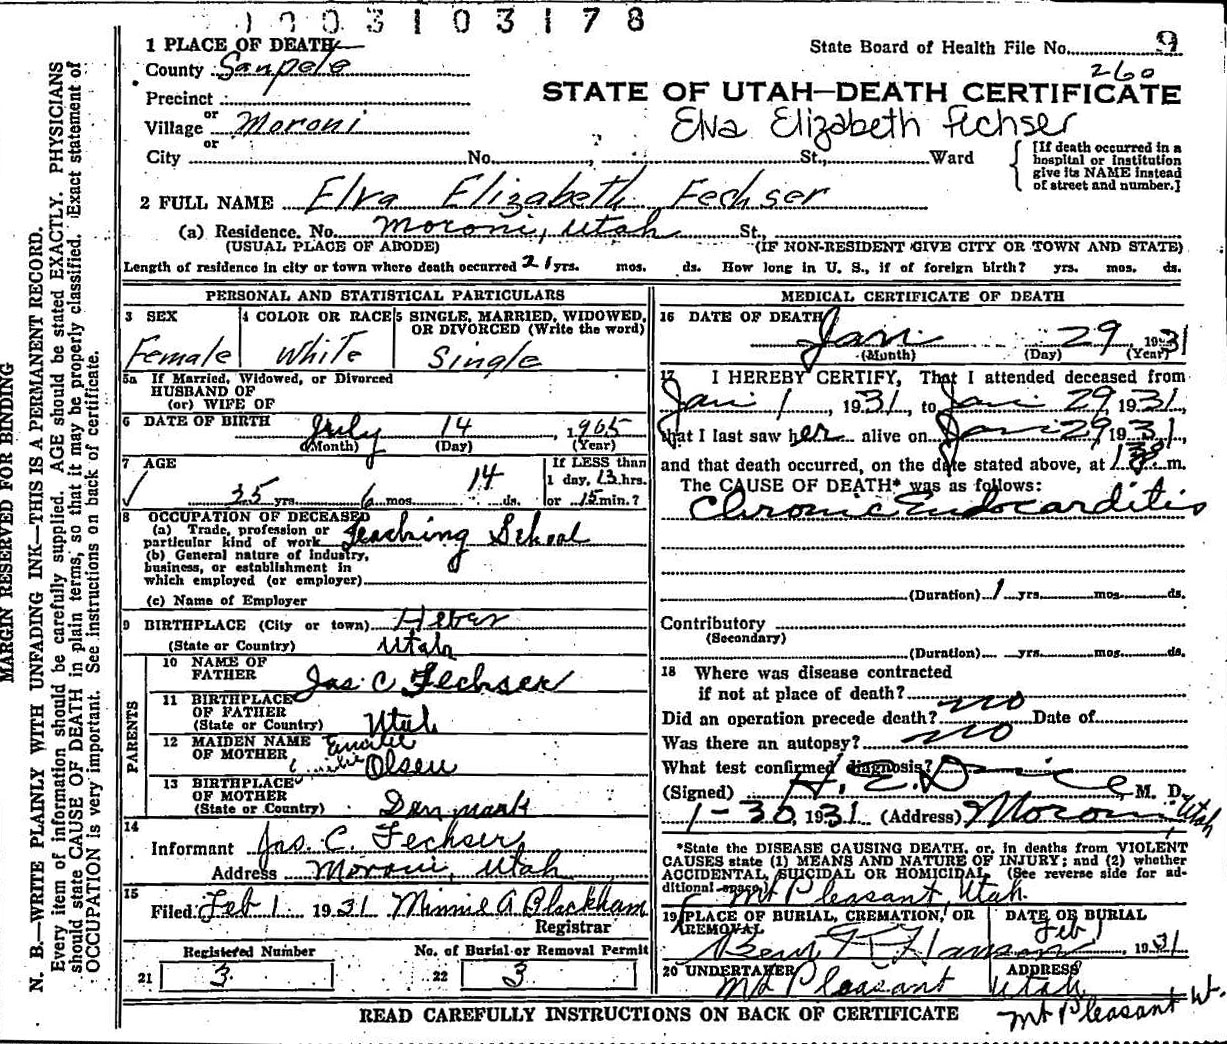 1003103178
1 PLACE OF DEATH
State Board of Health File No. 9
260
County Sanpete
STATE OF UTAH—DEATH CERTIFICATE
Precinct
or
Village Moroni
Elva Elizabeth Fechser
or
City No. , St., Ward
[If death occurred in a
hospital or institution
give its NAME instead
of street and number.]
2 FULL NAME Elva Elizabeth Fechser
(a) Residence. No. Moroni, Utah St.,
(USUAL PLACE OF ABODE) (IF NON-RESIDENT GIVE CITY OR TOWN AND STATE)
Length of residence in city or town where death occurred 21 yrs. mos. ds. How long in U. S., if of foreign birth? yrs. mos. ds.
PERSONAL AND STATISTICAL PARTICULARS
3 SEX
Female
4 COLOR OR RACE
White
5 SINGLE, MARRIED, WIDOWED,
OR DIVORCED (Write the word)
Single
5a If Married, Widowed, or Divorced
HUSBAND OF
(or) WIFE OF
6 DATE OF BIRTH July 14, 1905
(Month) (Day) (Year)
7 AGE
25 yrs. 6 mos. 14 ds.
If LESS than
1 day, 13 hrs.
or 15 min.?
8 OCCUPATION OF DECEASED
(a) Trade, profession or
particular kind of work Teaching School
(b) General nature of industry,
business, or establishment in
which employed (or employer)
(c) Name of Employer
9 BIRTHPLACE (City or town) Heber
(State or Country) Utah
PARENTS
10 NAME OF
FATHER Jas C Fechser
11 BIRTHPLACE
OF FATHER
(State or Country) Utah
12 MAIDEN NAME
OF MOTHER Olsen
13 BIRTHPLACE
OF MOTHER
(State or Country) Denmark
14
Informant Jas. C. Fechser
Address Moroni, Utah
15
Filed Feb 1 1931 Minnie A Blackham
Registrar
Registered Number
21 3
No. of Burial or Removal Permit
22 3
MEDICAL CERTIFICATE OF DEATH
16 DATE OF DEATH
Jan 29 1931
(Month) (Day) (Year)
17 I HEREBY CERTIFY, That I attended deceased from
Jan 1, 1931, to Jan 29, 1931,
that I last saw her alive on Jan 29, 1931,
and that death occurred, on the date stated above, at m.
The CAUSE OF DEATH* was as follows:
Chronic Endocarditis
(Duration) 1 yrs. mos. ds.
Contributory
(Secondary)
(Duration) yrs. mos. ds.
18 Where was disease contracted
if not at place of death?
Did an operation precede death? no Date of
Was there an autopsy? no
What test confirmed diagnosis?
(Signed) H. E. M. D.
1-30, 1931 (Address) Moroni, Utah
*State the DISEASE CAUSING DEATH, or, in deaths from VIOLENT
CAUSES state (1) MEANS AND NATURE OF INJURY; and (2) whether
ACCIDENTAL, SUICIDAL OR HOMICIDAL. (See reverse side for ad-
ditional space)
Mt Pleasant, Utah
19 PLACE OF BURIAL, CREMATION, OR
REMOVAL
DATE OF BURIAL
Feb 1 1931
20 UNDERTAKER
ADDRESS
Mt Pleasant Utah
Mt Pleasant Ut.
READ CAREFULLY INSTRUCTIONS ON BACK OF CERTIFICATE
MARGIN RESERVED FOR BINDING
N. B.—WRITE PLAINLY WITH UNFADING INK—THIS IS A PERMANENT RECORD.
Every item of information should be carefully supplied. AGE should be stated EXACTLY. PHYSICIANS
should state CAUSE OF DEATH in plain terms, so that it may be properly classified. Exact statement of
OCCUPATION is very important. See instructions on back of certificate.